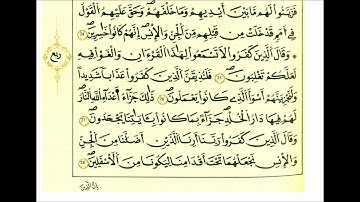 فَزَيَّنُوا۟ لَهُم مَّا بَيْنَ أَيْدِيهِمْ وَمَا خَلْفَهُمْ وَحَقَّ عَلَيْهِمُ ٱلْقَوْلُ
فِىٓ أُمَمٍ قَدْ خَلَتْ مِن قَبْلِهِم مِّنَ ٱلْجِنِّ وَٱلْإِنسِ إِنَّهُمْ كَانُوا۟ خَٰسِرِينَ ٢٥
وَقَالَ ٱلَّذِينَ كَفَرُوا۟ لَا تَسْمَعُوا۟ لِهَٰذَا ٱلْقُرْءَانِ وَٱلْغَوْا۟ فِيهِ
لَعَلَّكُمْ تَغْلِبُونَ ٢٦ فَلَنُذِيقَنَّ ٱلَّذِينَ كَفَرُوا۟ عَذَابًا شَدِيدًا
وَلَنَجْزِيَنَّهُمْ أَسْوَأَ ٱلَّذِى كَانُوا۟ يَعْمَلُونَ ٢٧ ذَٰلِكَ جَزَآءُ أَعْدَآءِ ٱللَّهِ ٱلنَّارُ
لَهُمْ فِيهَا دَارُ ٱلْخُلْدِ جَزَآءًۢ بِمَا كَانُوا۟ بِـَٔايَٰتِنَا يَجْحَدُونَ ٢٨
وَقَالَ ٱلَّذِينَ كَفَرُوا۟ رَبَّنَآ أَرِنَا ٱلَّذَيْنِ أَضَلَّانَا مِنَ ٱلْجِنِّ
وَٱلْإِنسِ نَجْعَلْهُمَا تَحْتَ أَقْدَامِنَا لِيَكُونَا مِنَ ٱلْأَسْفَلِينَ ٢٩
إن الذين